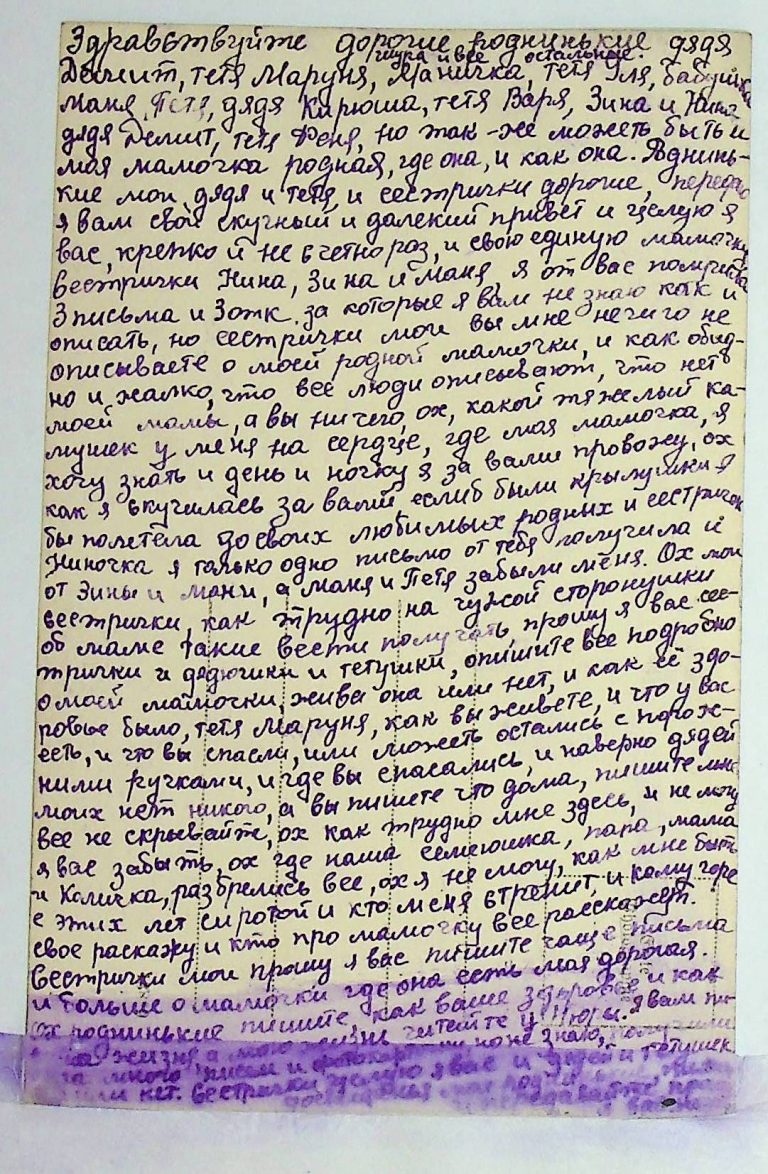 Здравствуйте дорогие роднинькие дядя
Шура и все остальные.
Демит, тетя Маруня, Маничка, тетя Уля, бабушка
Маня, Петя, дядя Кирюша, тетя Варя, Зина и Нина
дядя Демит, тетя Феня, но так-же можеть быть и
моя мамочка родная, где она, и как она. Роднинь-
кие мои, дядя и тетя, и сестрички дорогие, передаю
я вам свой скучный и далекий привет и целую я
вас, крепко и не счетно раз, и свою единую мамочку
Сестрички Нина, Зина и Маня, я от вас получила
3 письма и 3 отк. за которые я вам не знаю как и
описать, но сестрички мои вы мне нечиго не
описываете о моей родной мамочки, и как обид-
но и жалко, что все люди описывают, что нет
моей мамы, а вы ничего, ох, какой тяжелый ка-
мушек у меня на сердце, где моя мамочка, я
хочу знать и день и ночку я за вами провожу, ох
как я скучилась за вами, еслиб были крылушки я
бы полетела до своих любимых родных и сестричек
Ниночка я только одно письмо от тебя получила и
от Зины и Мани, а Маня и Петя забыли меня. Ох мои
сестрички, как трудно на чужой сторонушки
об маме такие вести получать, прошу я вас сес-
трички и дядюшки и тетушки, опишите все подробно
о моей мамочки, живая она или нет, и как её здо-
ровье было, тетя Маруня, как вы живете, и что у вас
есть, и что вы спасли, или можеть остались с порож-
ними ручками, и где вы спасались, и наверно дядей
моих нет никого, а вы пишете что дома, пишите мне
все не скрывайте, ох как трудно мне здесь, и не могу
я вас забыть, ох где наша семеюшка, папа, мама
и Количка, разбрелись все, ох я не могу, как мне быть
с этих лет сиротой и кто меня встренит, и кому горе
свое раскажу и кто про мамочку все расскажет.
Сестрички мои прошу я вас пишите чаще письма
и больше о мамочки где она есть моя дорогая.
Ох роднинькие пишите, как ваше здоровье и как
жизня, а мою читейте у Нюры. Я вам пи-
много писем и не знаю, получили
или нет. Сестрички целую я вас и дядей и тетушек